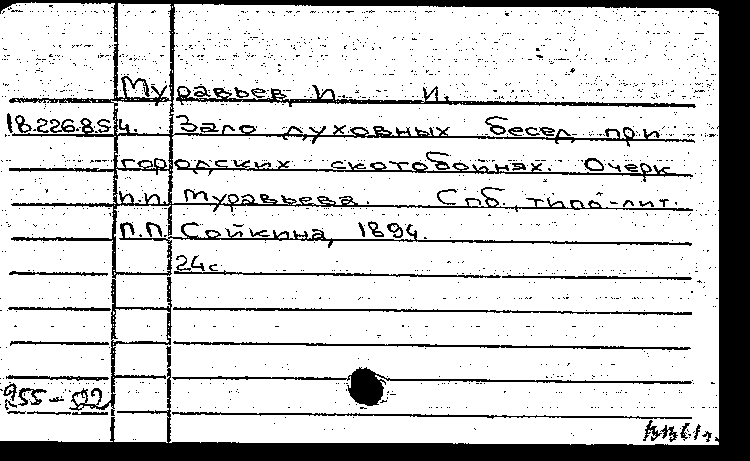 Муравьев, П. И.
18.226.8.54. Зало духовных бесед при
городских скотобойнях. Очерк
п.п. Муравьева. Спб, типо-лит.
П.П. Сойкина, 1894.
24с
255-592